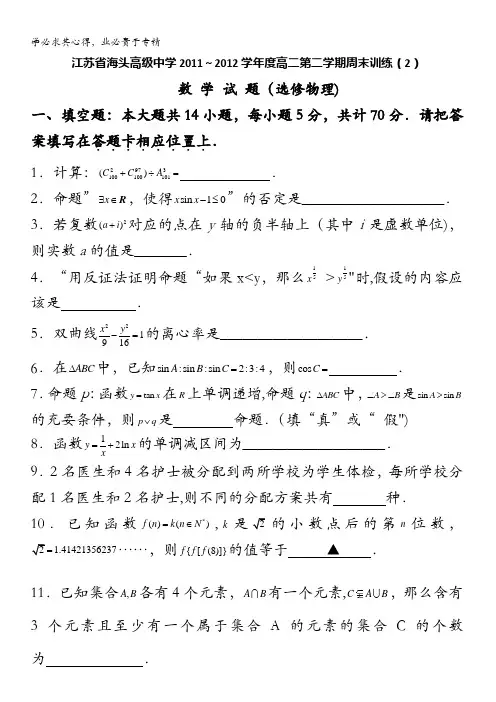 学必求其心得，业必贵于专精
江苏省海头高级中学2011～2012学年度高二第二学期周末训练（2）
数 学 试 题（选修物理)
一、填空题：本大题共14小题，每小题5分，共计70分．请把答
案填写在答题卡相应位置上．
1．计算：$(C_{100}^{2}+C_{100}^{97})÷A_{101}^{3}=$ ________ ．
2．命题”∃x∈R，使得x sin x−1≤0”的否定是________．
3．若复数$(a+i)^2$对应的点在y轴的负半轴上（其中i是虚数单位)，
则实数a的值是________．
4．“用反证法证明命题“如果x<y，那么$x^{\frac{1}{5}}$ >$y^{\frac{1}{5}}$"时,假设的内容应
该是 ________ ．
5．双曲线$\frac{x^2}{9}-\frac{y^2}{16}=1$的离心率是________．
6．在∆ABC中，已知sin A:sin B:sin C=2:3:4，则cos C= ________ ．
7．命题p：函数y=tan x在R上单调递增,命题q：∆ABC中，∠A>∠B是sin A>sin B
的充要条件，则p∨q是 ________ 命题．（填“真”或“ 假")
8．函数$y=\frac{1}{x}+2\ln x$的单调减区间为________．
9．2名医生和4名护士被分配到两所学校为学生体检，每所学校分
配1名医生和2名护士,则不同的分配方案共有 ________ 种．
10．已知函数$f(n)=k(n∈N^*)$，k是$\sqrt{2}$的小数点后的第n位数，
$\sqrt{2}$=1.41421356237······，则f{f[f(8)]}的值等于 ▲ ．
11．已知集合A,B各有4个元素，A∩B有一个元素,C⫋A∪B，那么含有
3个元素且至少有一个属于集合A的元素的集合C的个数
为 ________ ．